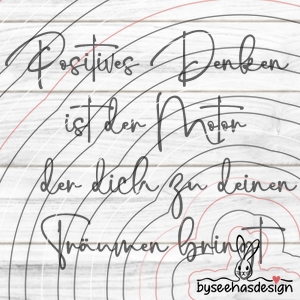 Positives Denken
ist der Motor
der dich zu deinen
Träumen bringt
byseehasdesign